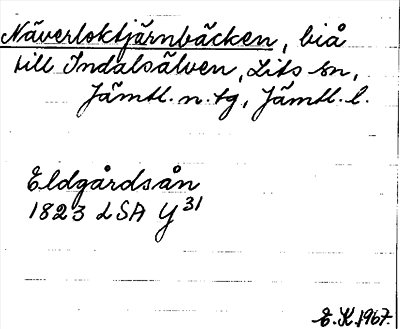 Näverloktjärnbäcken, biå
till Indalsälven, Lits sn,
Jämtl. n. tg, Jämtl. l.
Eldgårdsån
1823 LSA Y 31
E. K. 1967.